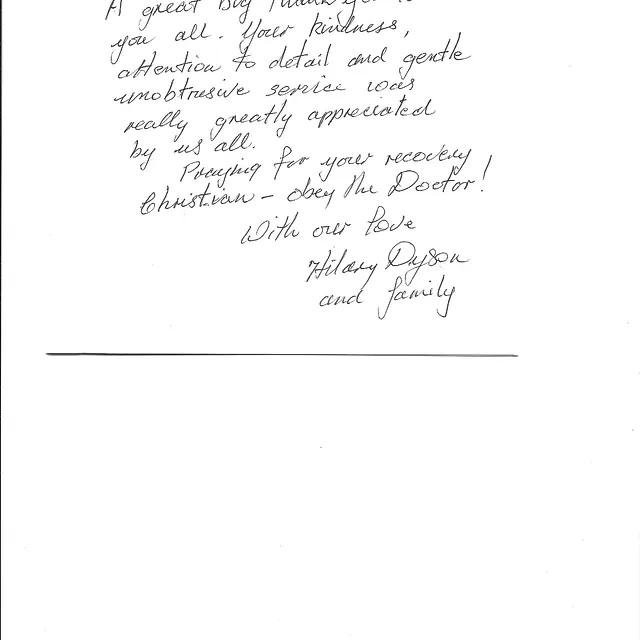 A great Big Thank you to
you all. Your kindness,
attention to detail and gentle
unobtrusive service was
really greatly appreciated
by us all.
Praying for your recovery
Christian - obey the Doctor!
With our love
Hilary Dyson
and family